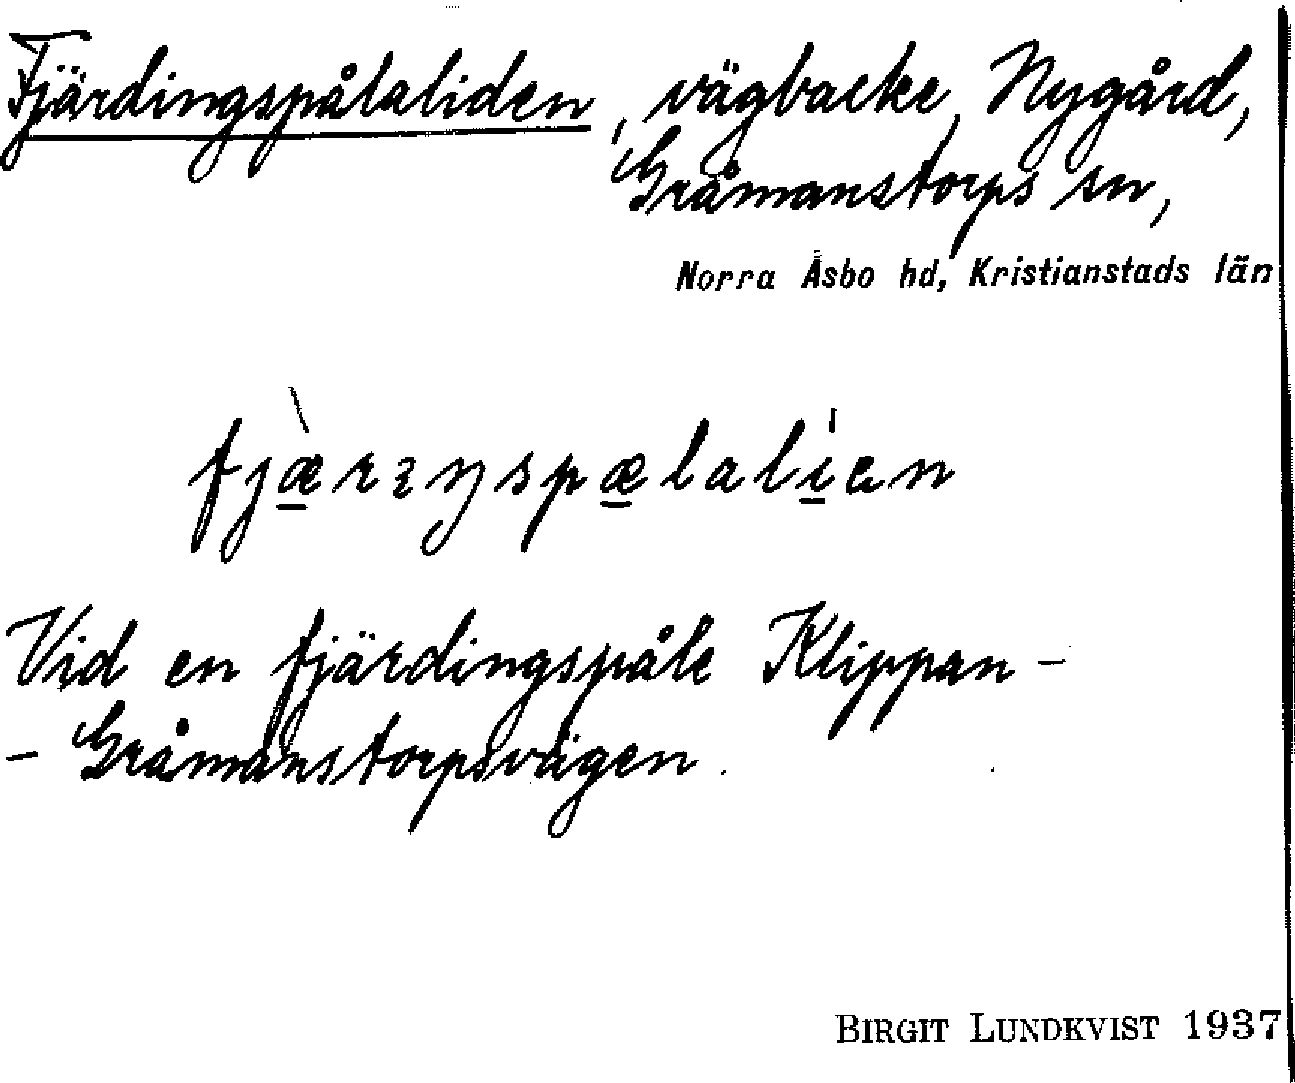 Fjärdingspålaliden, vägbacke, Nygård,
Gråmanstorps sn,
Norra Åsbo hd, Kristianstads län
Vid en fjärdingspåle Klippan -
- Gråmanstorpsvägen.
BIRGIT LUNDKVIST 1937